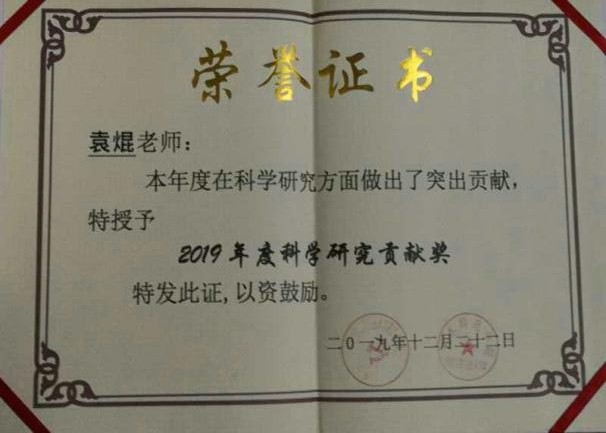 荣誉证书
袁焜老师：
本年度在科学研究方面做出了突出贡献，
特授予
2019年度科学研究贡献奖
特发此证，以资鼓励。
二0一九年十二月二十二日